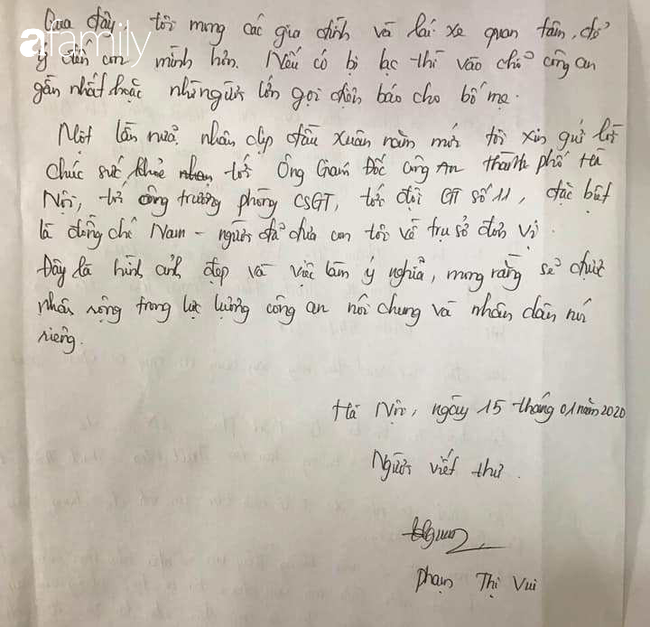 Qua đây tôi mong các gia đình và lái xe quan tâm, để
afamily
ý đến con mình hơn. Nếu có bị lạc thì vào chỗ công an
gần nhất hoặc những người lớn gọi điện báo cho bố mẹ.
Một lần nữa, nhân dịp đầu xuân năm mới tôi xin gửi lời
chúc sức khỏe tới Ông Giám Đốc công An thành phố Hà
Nội, tới ông trưởng phòng CSGT, tới đội GT số 11, đặc biệt
là đồng chí Nam - người đã đưa con tôi về trụ sở đơn vị.
Đây là hình ảnh đẹp và việc làm ý nghĩa, mong rằng sẽ được
nhân rộng trong lực lượng công an nói chung và nhân dân nói
riêng.
Hà Nội, ngày 15 tháng 01 năm 2020
Người viết thư.
Phạm Thị Vui